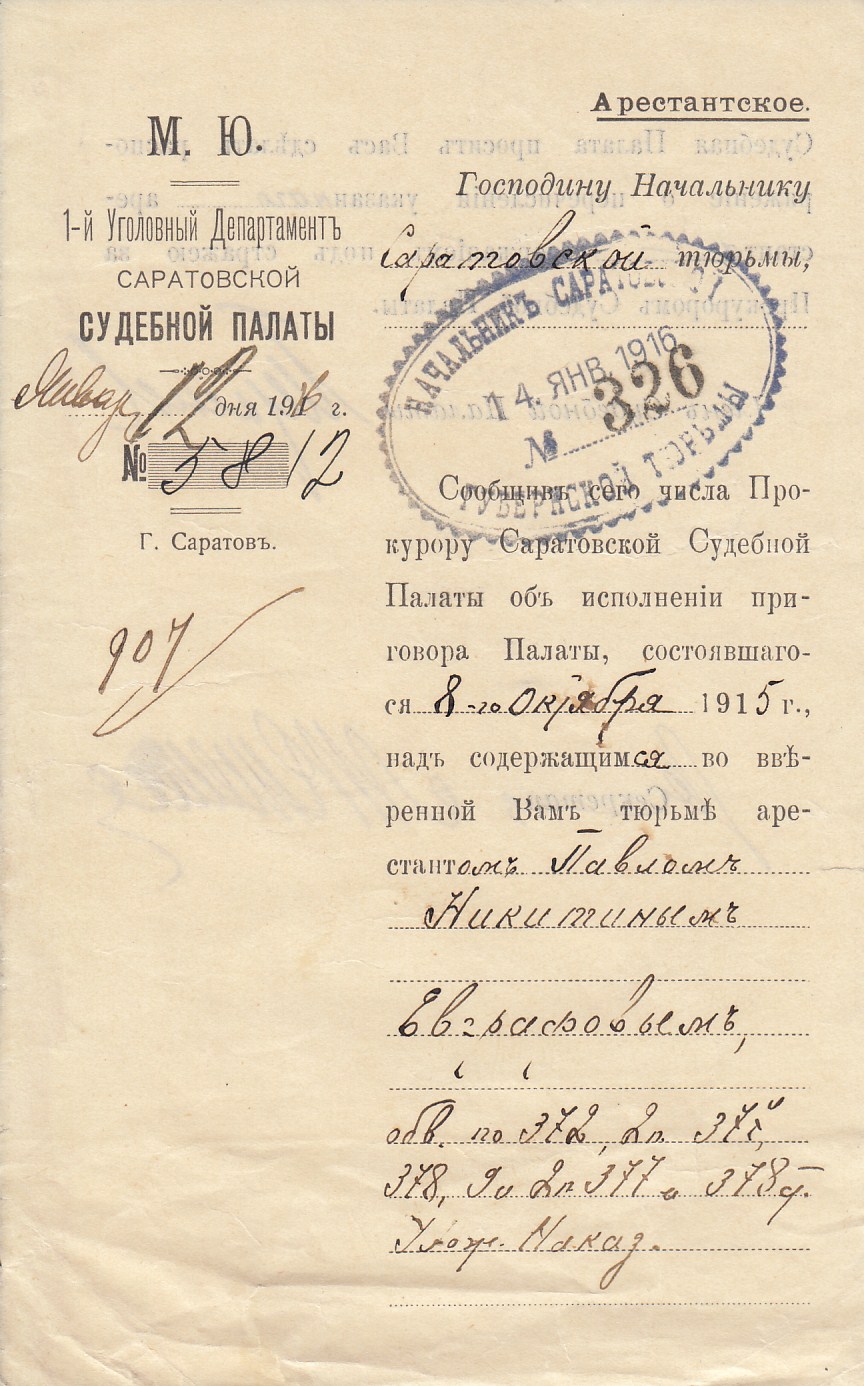 Арестантское.
М. Ю.
1-й Уголовный Департаментъ
САРАТОВСКОЙ
СУДЕБНОЙ ПАЛАТЫ
Январ 12 дня 1916 г.
№ 5812
Г. Саратовъ.
907
Господину Начальнику
Саратовской тюрьмы,
НАЧАЛЬНИКЪ САРАТОВСКОЙ
14. ЯНВ. 1916
№ 326
ГУБЕРНСКОЙ ТЮРЬМЫ
Сообщивъ сего числа Про-
курору Саратовской Судебной
Палаты объ исполненіи при-
говора Палаты, состоявшаго-
ся 8-го Октября 1915 г.,
надъ содержащимся во ввѣ-
ренной Вамъ тюрьмѣ аре-
стантомъ Павломъ
Никитинымъ
Евграфовымъ,
обв. по 372, 2 п.
378, 2 п 377 и 378 ст.
Улож. Наказ.